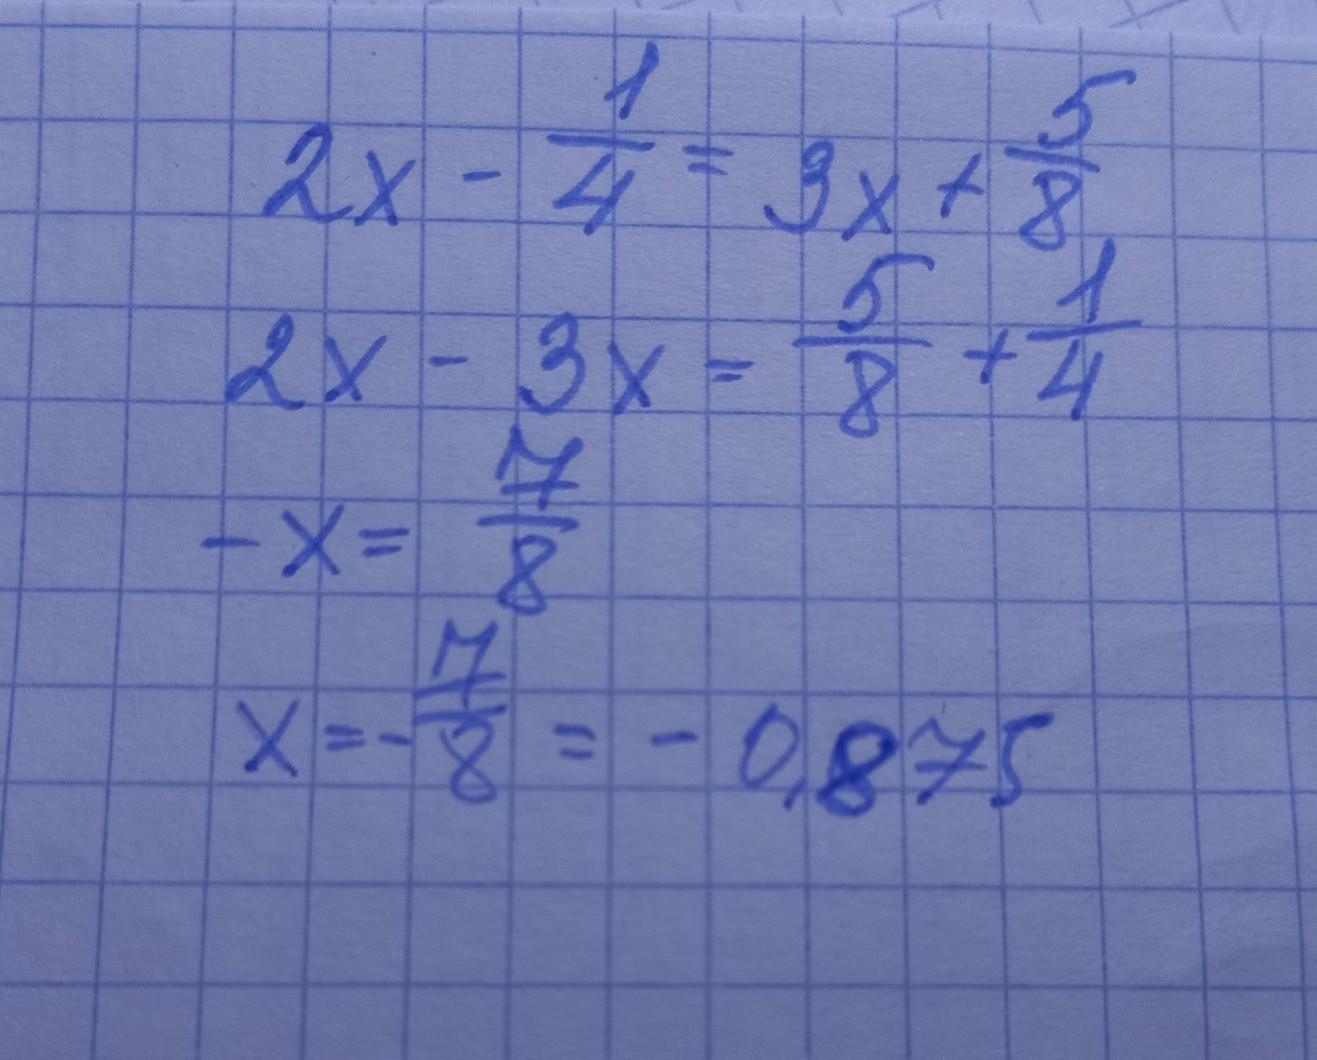 2x - 1/4 = 3x + 5/8
2x - 3x = 5/8 + 1/4
- x = 7/8
x = - 7/8 = - 0,875